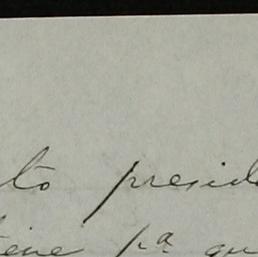 to presid
tiene pª qu